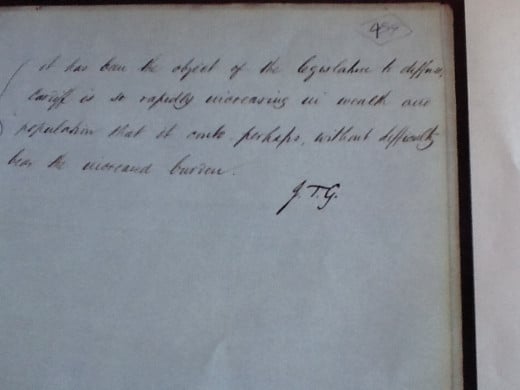 it has been the object of the legislature to diffuse,
Cardiff is so rapidly increasing in wealth and
population that it could, perhaps, without difficulty
bear the increased burden.
J.T.G.